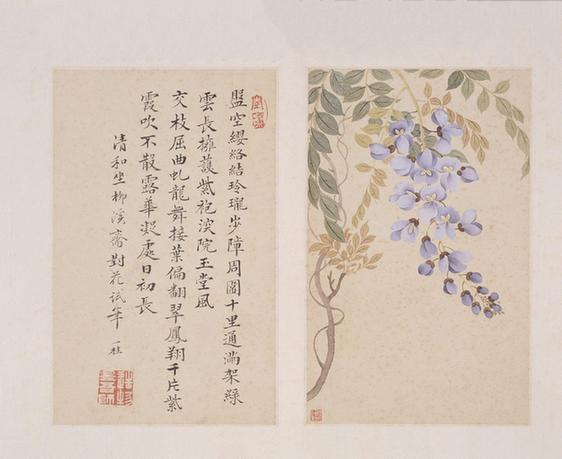 盤空纓絡結玲瓏步障周圍十里通滿架綠
雲長擁護紫袍深院玉堂風
交枝屈曲虬龍舞接葉偏翻翠鳳翔千片紫
霞吹不散露華凝處日初長
清和坐柳溪齋對花試筆 一桂